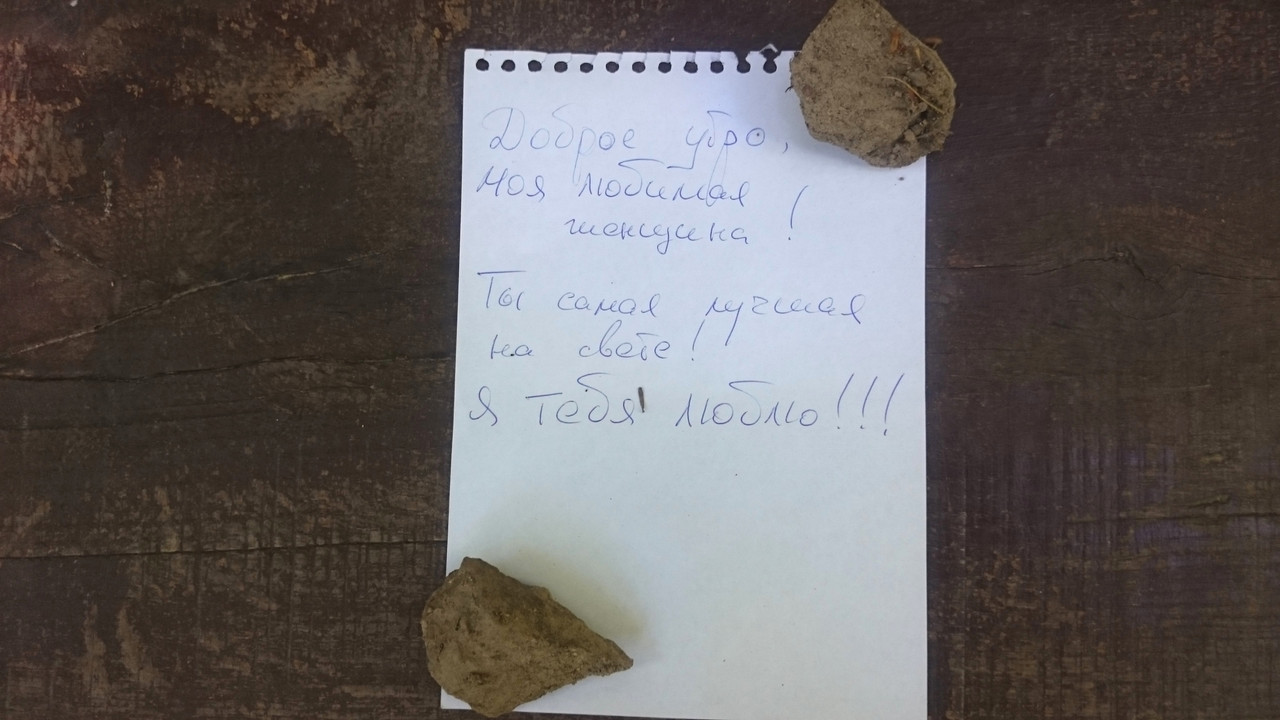 Доброе утро,
моя любимая
женщина !
Ты самая лучшая
на свете!
Я тебя люблю!!!